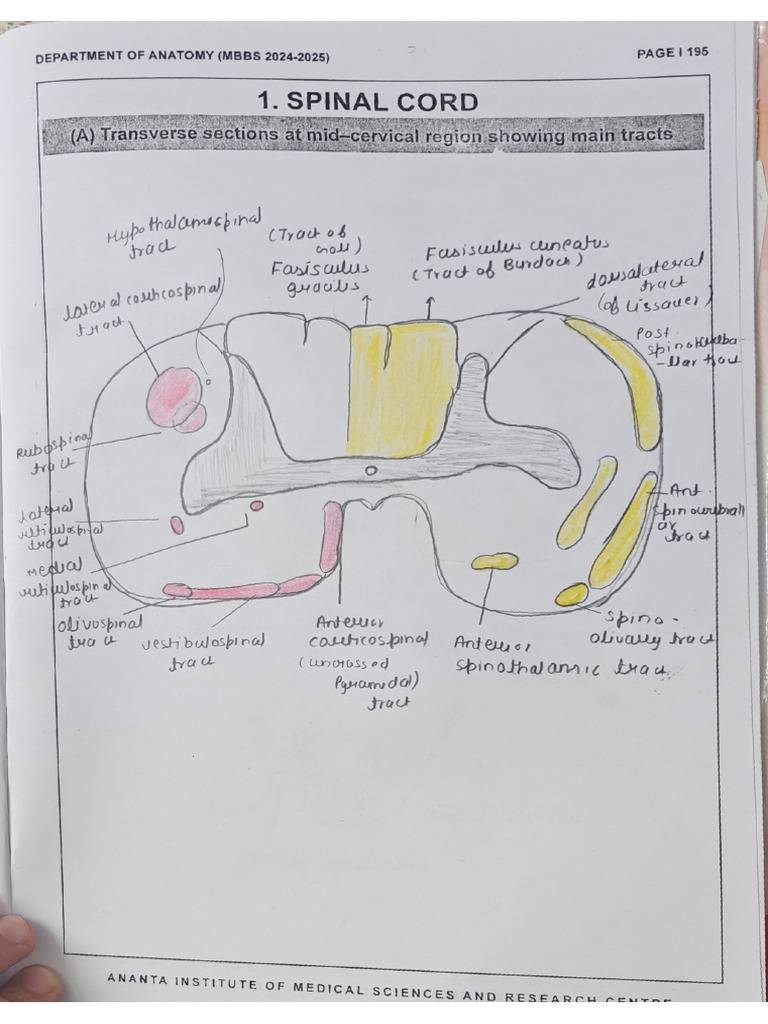 DEPARTMENT OF ANATOMY (MBBS 2024-2025)
PAGE I 195
1. SPINAL CORD
(A) Transverse sections at mid–cervical region showing main tracts
Hypothalamospinal
tract
(Tract of
Goll)
Fasisculus
gracilis
Fasisculus cuneatus
(Tract of Burdach)
dorsalateral
tract
(of Lissauer)
lateral corticospinal
tract
Post
tract
Rubospinal
tract
lateral
reticulospinal
tract
Medial
reticulospinal
tract
olivospinal
tract
vestibulospinal
tract
Anterior
corticospinal
(uncrossed
Pyramidal)
tract
Anterior
spinothalamic tract
Spino-
olivary tract
Ant.
spinocerebell
ar
tract
ANANTA INSTITUTE OF MEDICAL SCIENCES AND RESEARCH CENTRE